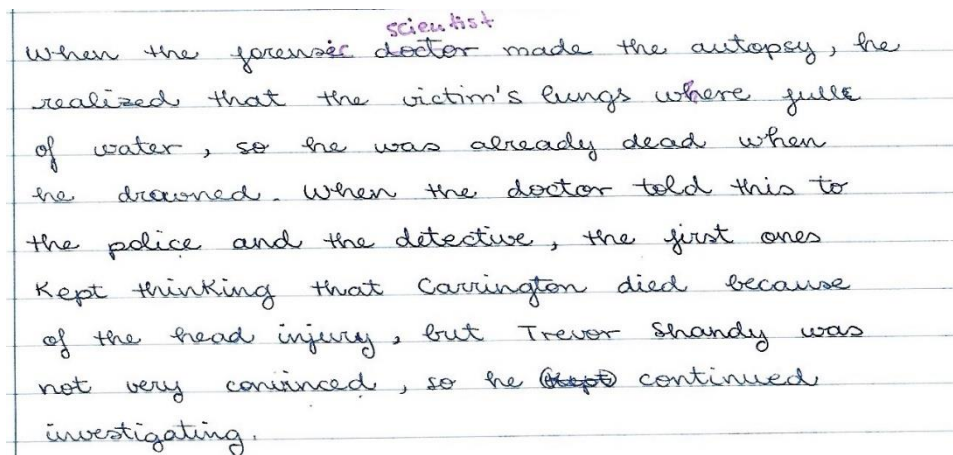 scientist
When the forensic doctor made the autopsy, he
realized that the victim's lungs where fulle
of water, so he was already dead when
he drowned. When the doctor told this to
the police and the detective, the first ones
Kept thinking that Carrington died because
of the head injury, but Trevor Shandy was
not very convinced, so he (kept) continued
investigating.